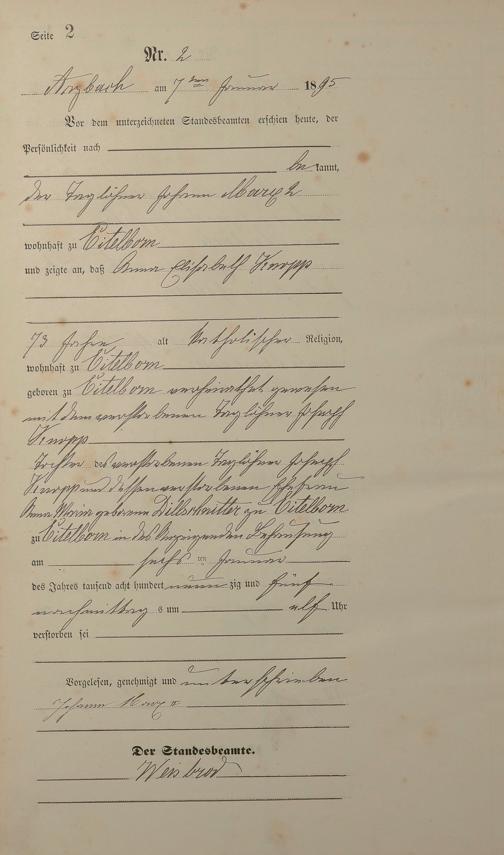 Seite 2
Nr. 2
Arzbach am 7ten Januar 1895
Vor dem unterzeichneten Standesbeamten erschien heute, der
Persönlichkeit nach
be kannt,
der Taglöhner Johann Marx 2
wohnhaft zu Eitelborn
und zeigte an, daß Anna Elisabeth Knopp
73 Jahre, alt katholischer Religion,
wohnhaft zu Eitelborn
geboren zu Eitelborn verheirathet gewesen
mit dem verstorbenen Taglöhner Joseph
Knopp
Tochter des verstorbenen Taglöhner Joseph
Knopp und dessen verstorbenen Ehefrau
Anna Maria geborenen Dillschnitter zu Eitelborn
zu Eitelborn in des Anzeigenden Behausung
am sechs ten Januar
des Jahres tausend acht hundert neun zig und fünf
nachmittag s um elf Uhr
verstorben sei
Vorgelesen, genehmigt und unterschrieben
Johann Marx II
Der Standesbeamte.
Weisbrod